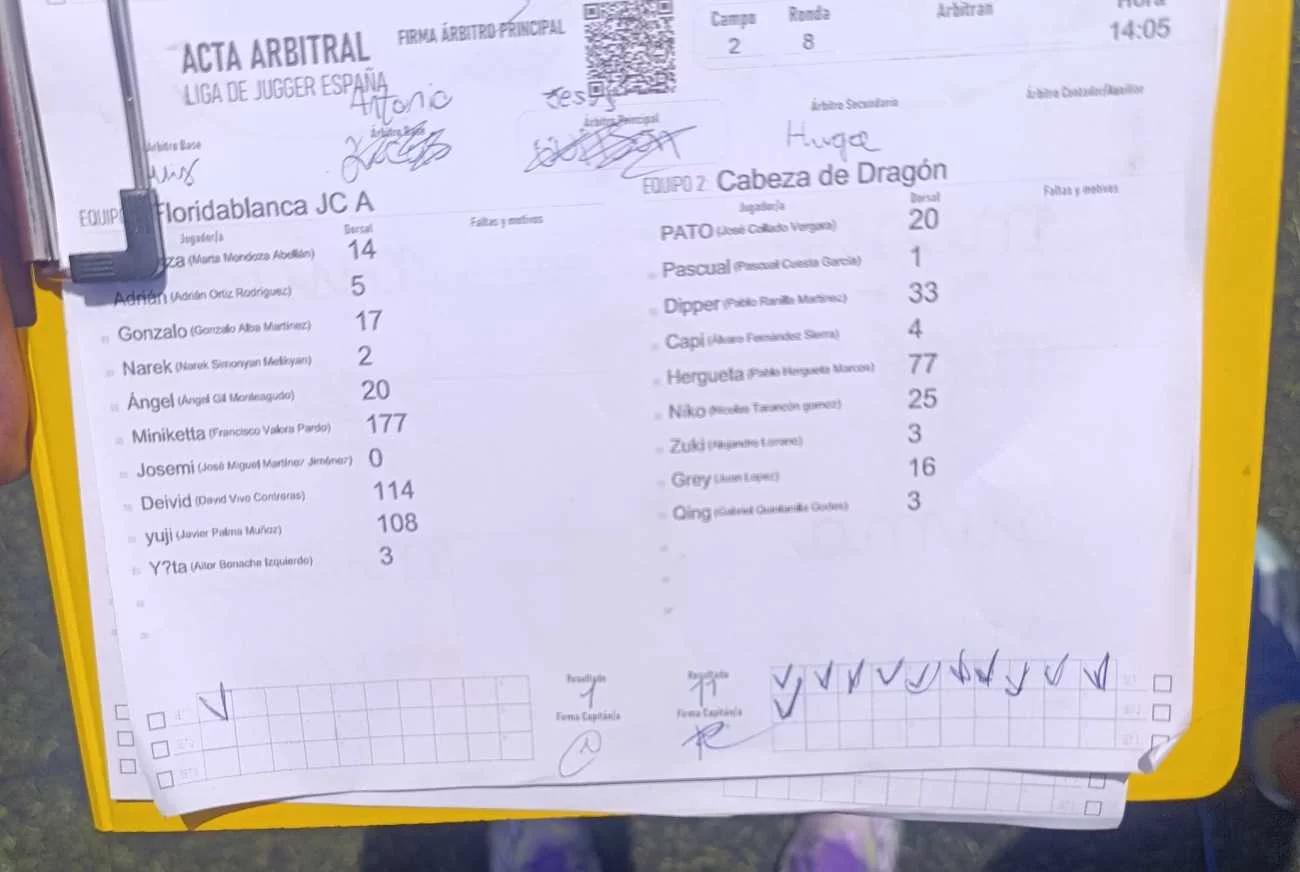 ACTA ARBITRAL
LIGA DE JUGGER ESPAÑA
FIRMA ÁRBITRO PRINCIPAL
Campo Ronda Arbitran
2 8 14:05
Antonio Jesús
Árbitro Base Árbitro Principal Árbitro Secundario Árbitro Contador/Auxiliar
Hugo
Floridablanca JC A
Jugador/a Dorsal Faltas y motivos
za (Marta Mondoza Abellán) 14
Adrián (Adrián Ortiz Rodríguez) 5
Gonzalo (Gonzalo Alba Martínez) 17
Narek (Narek Simonyan Melikyan) 2
Ángel (Ángel Gil Monteagudo) 20
Miniketta (Francisco Valora Pardo) 177
Josemi (José Miguel Martínez Jiménez) 0
Deivid (David Vivo Contreras) 114
yuji (Javier Palma Muñoz) 108
Y?ta (Aitor Bonache Izquierdo) 3
EQUIPO 2: Cabeza de Dragón
Jugador/a Dorsal Faltas y motivos
PATO (José Collado Vergara) 20
Pascual (Pascual Cuesta García) 1
Dipper (Pablo Ranilla Martínez) 33
Capi (Álvaro Fernández Sierra) 4
Hergueta (Pablo Hergueta Marcos) 77
Niko (Nicolás Tarancón gomez) 25
Zuki (Alejandro Lorano) 3
Grey (Juan López) 16
Qing (Gabriel Quintanilla Godes) 3
Resultado Resultado
1 11
Firma Capitán/a Firma Capitán/a